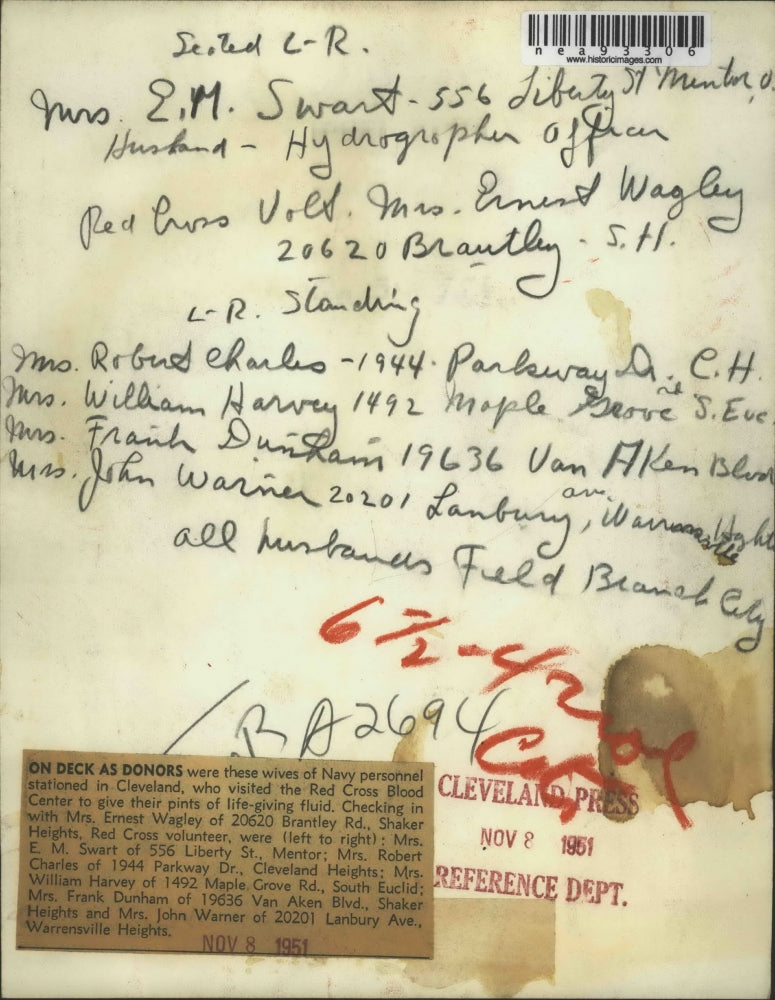 nea93306
www.historicimages.com
Seated L-R.
Mrs. E.M. Swart - 556 Liberty St Mentor, O.
Husband - Hydrographer Officer
Red Cross Volt. Mrs. Ernest Wagley
20620 Brantley - S.H.
L-R. Standing
Mrs. Robert Charles - 1944 Parkway Dr. C.H.
Mrs. William Harvey 1492 Maple Grove rd S. Euc.
Mrs. Frank Dunham 19636 Van Aken Blvd
Mrs. John Warner 20201 Lanbury ave, Hghts
all husbands Field Branch
6 7/2 - 4/2
BA2694
ON DECK AS DONORS were these wives of Navy personnel
stationed in Cleveland, who visited the Red Cross Blood
Center to give their pints of life-giving fluid. Checking in
with Mrs. Ernest Wagley of 20620 Brantley Rd., Shaker
Heights, Red Cross volunteer, were (left to right): Mrs.
E. M. Swart of 556 Liberty St., Mentor; Mrs. Robert
Charles of 1944 Parkway Dr., Cleveland Heights; Mrs.
William Harvey of 1492 Maple Grove Rd., South Euclid;
Mrs. Frank Dunham of 19636 Van Aken Blvd., Shaker
Heights and Mrs. John Warner of 20201 Lanbury Ave.,
Warrensville Heights.
NOV 8 1951
CLEVELAND PRESS
NOV 8 1951
REFERENCE DEPT.